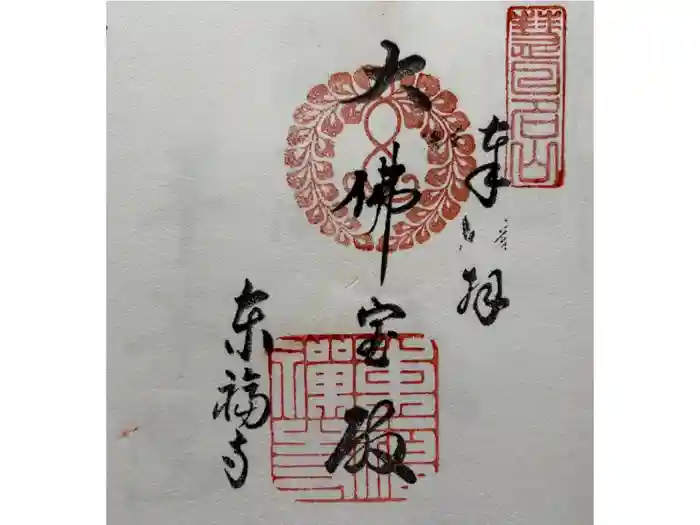 慧日山
奉拝
大佛宝殿
東福
禪寺
東福寺